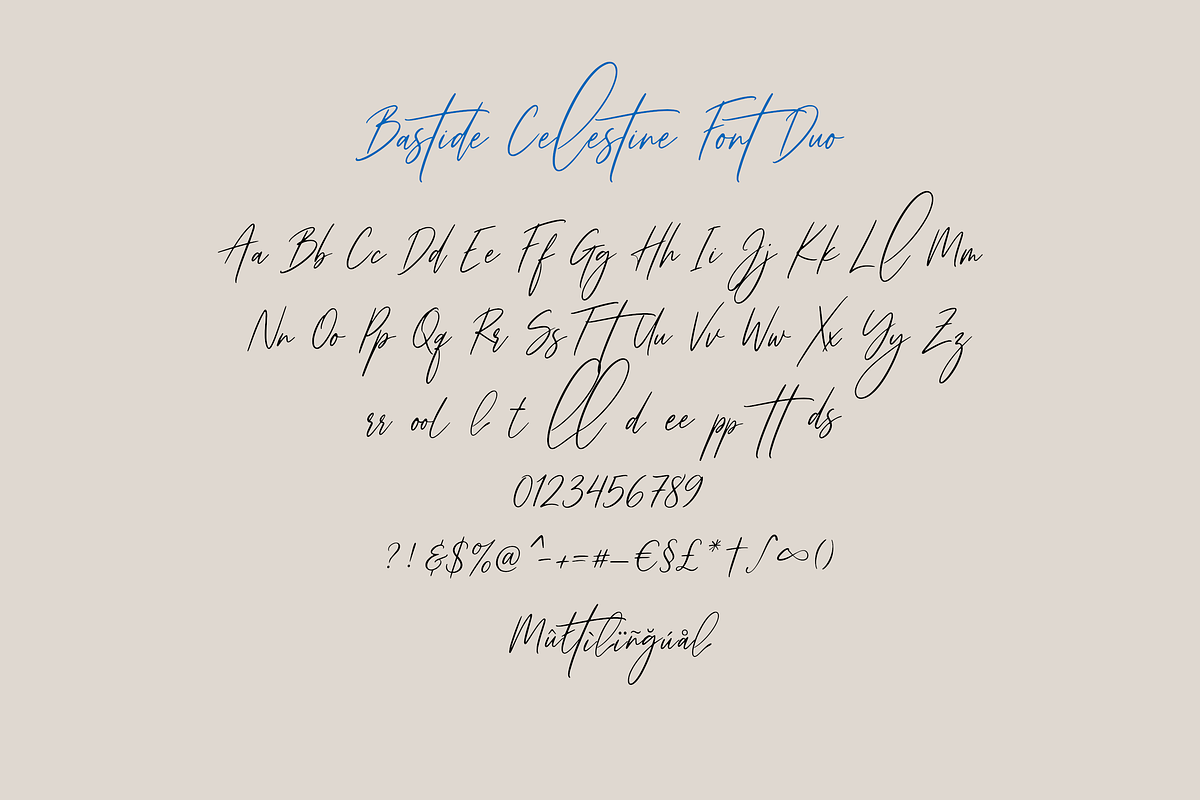 Bastide Celestine Font Duo
Aa Bb Cc Dd Ee Ff Gg Hh Ii Jj Kk Ll Mm
Nn Oo Pp Qq Rr Ss Tt Uu Vv Ww Xx Yy Zz
rr ool l t ll d ee pp tt ds
0123456789
?!&$%@^-+=#_€§£*†∫∞()
Mûłtìlïñğúål